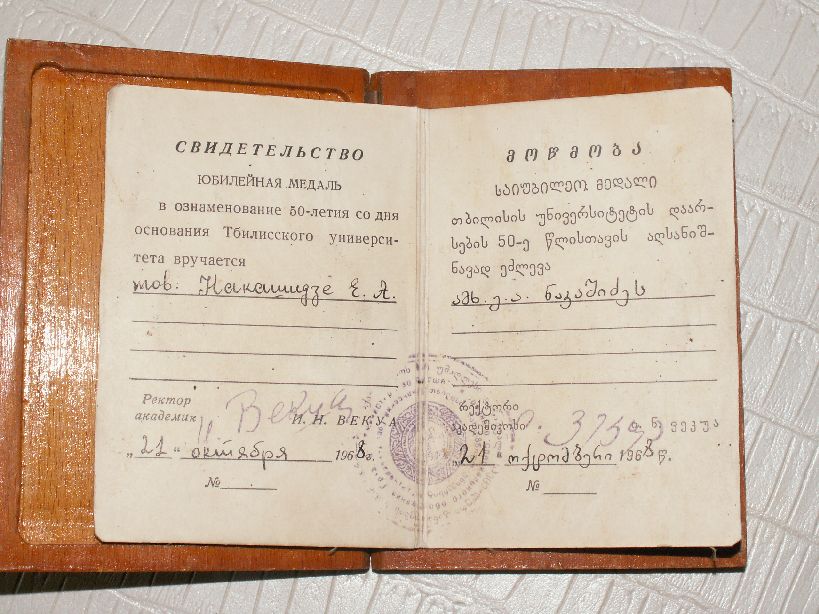 СВИДЕТЕЛЬСТВО
ЮБИЛЕЙНАЯ МЕДАЛЬ
в ознаменование 50-летия со дня
основания Тбилисского универси-
тета вручается
тов. Накашидзе Е. А.
Ректор
академик
Векуа
И. Н. ВЕКУА
„21“ октября 1968 г.
№
მოწმობა
საიუბილეო მედალი
თბილისის უნივერსიტეტის დაარ-
სების 50-ე წლისთავის აღსანიშ-
ნავად ეძლევა
ამხ. ე. ა. ნაკაშიძეს
რექტორი
აკადემიკოსი
ი. ნ. ვეკუა
„21“ ოქტომბერი 1968 წ.
№